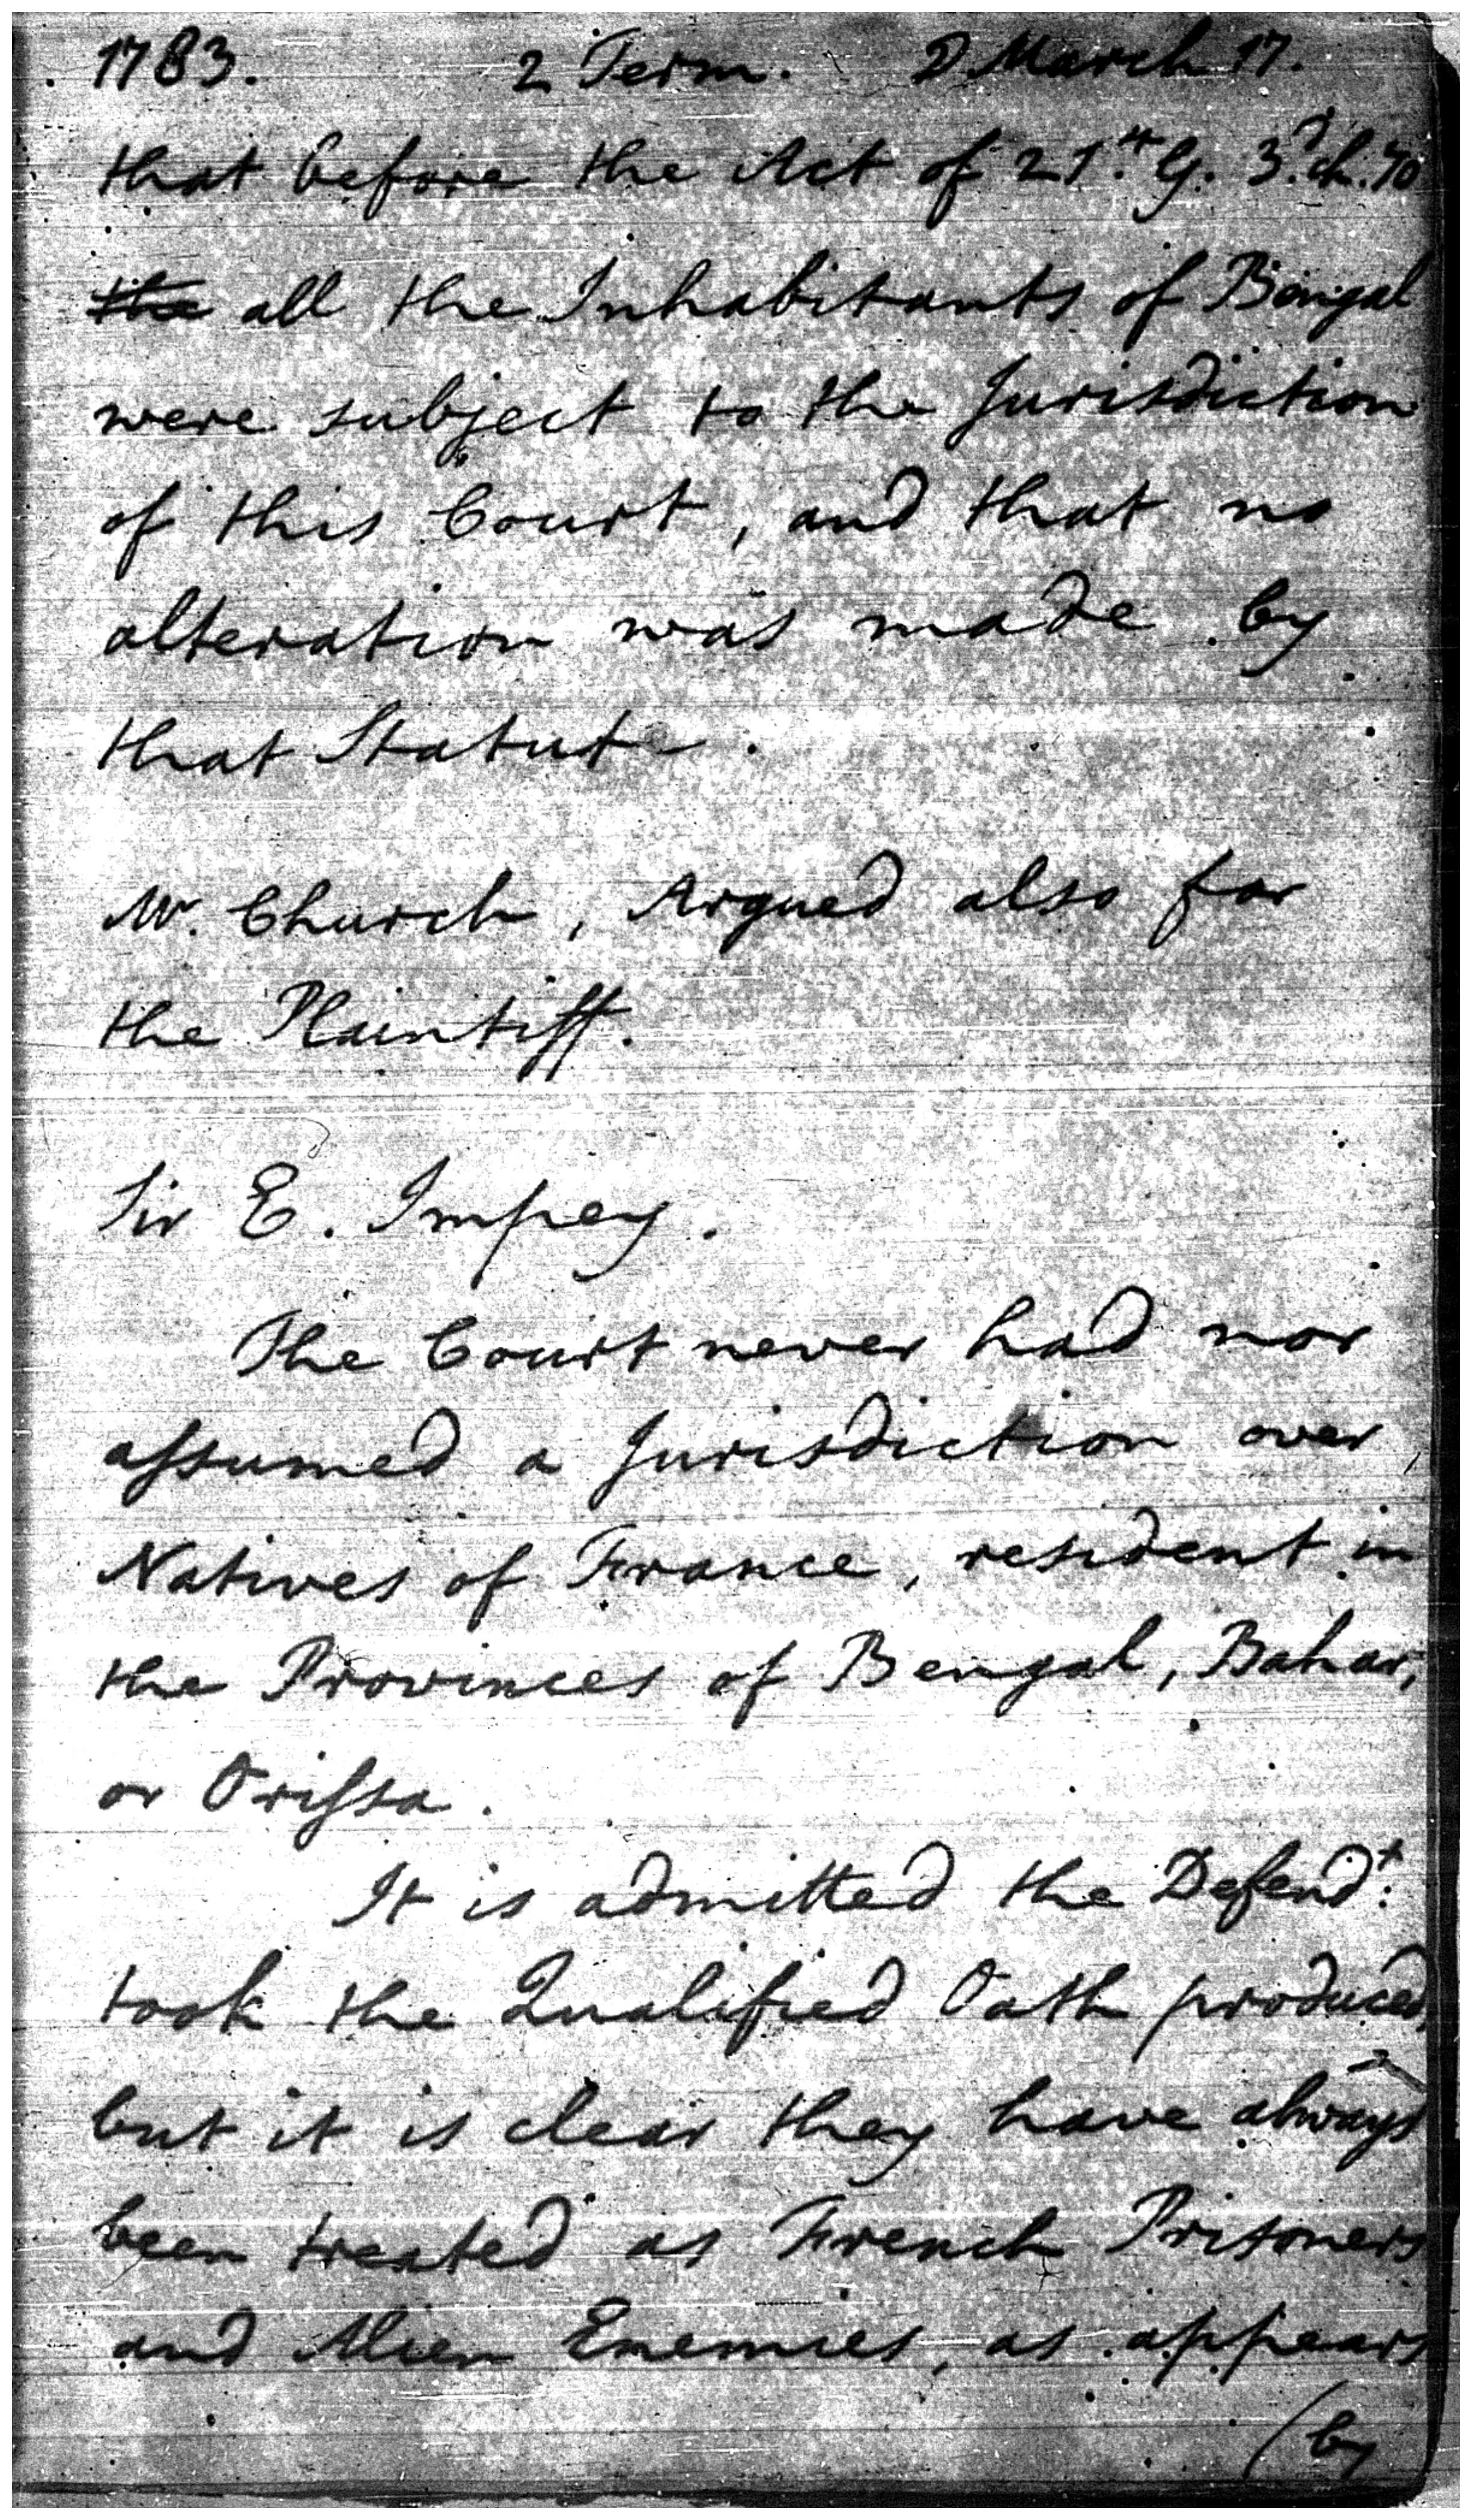 1783. 2 Term. D March 17.
that before the Act of 21.st G. 3.d ch. 70
the all the Inhabitants of Bengal
were subject to the Jurisdiction
of this Court, and that no
alteration was made by
that Statute.
Mr. Church, Argued also for
the Plaintiff.
Sir E. Impey.
The Court never had nor
aſsumed a Jurisdiction over
Natives of France, resident in
the Provinces of Bengal, Bahar,
or Oriſsa.
It is admitted the Defend.t
took the Qualified Oath produced,
but it is clear they have always
been treated as French Prisoners
and Alien Enemies, as appears
(by